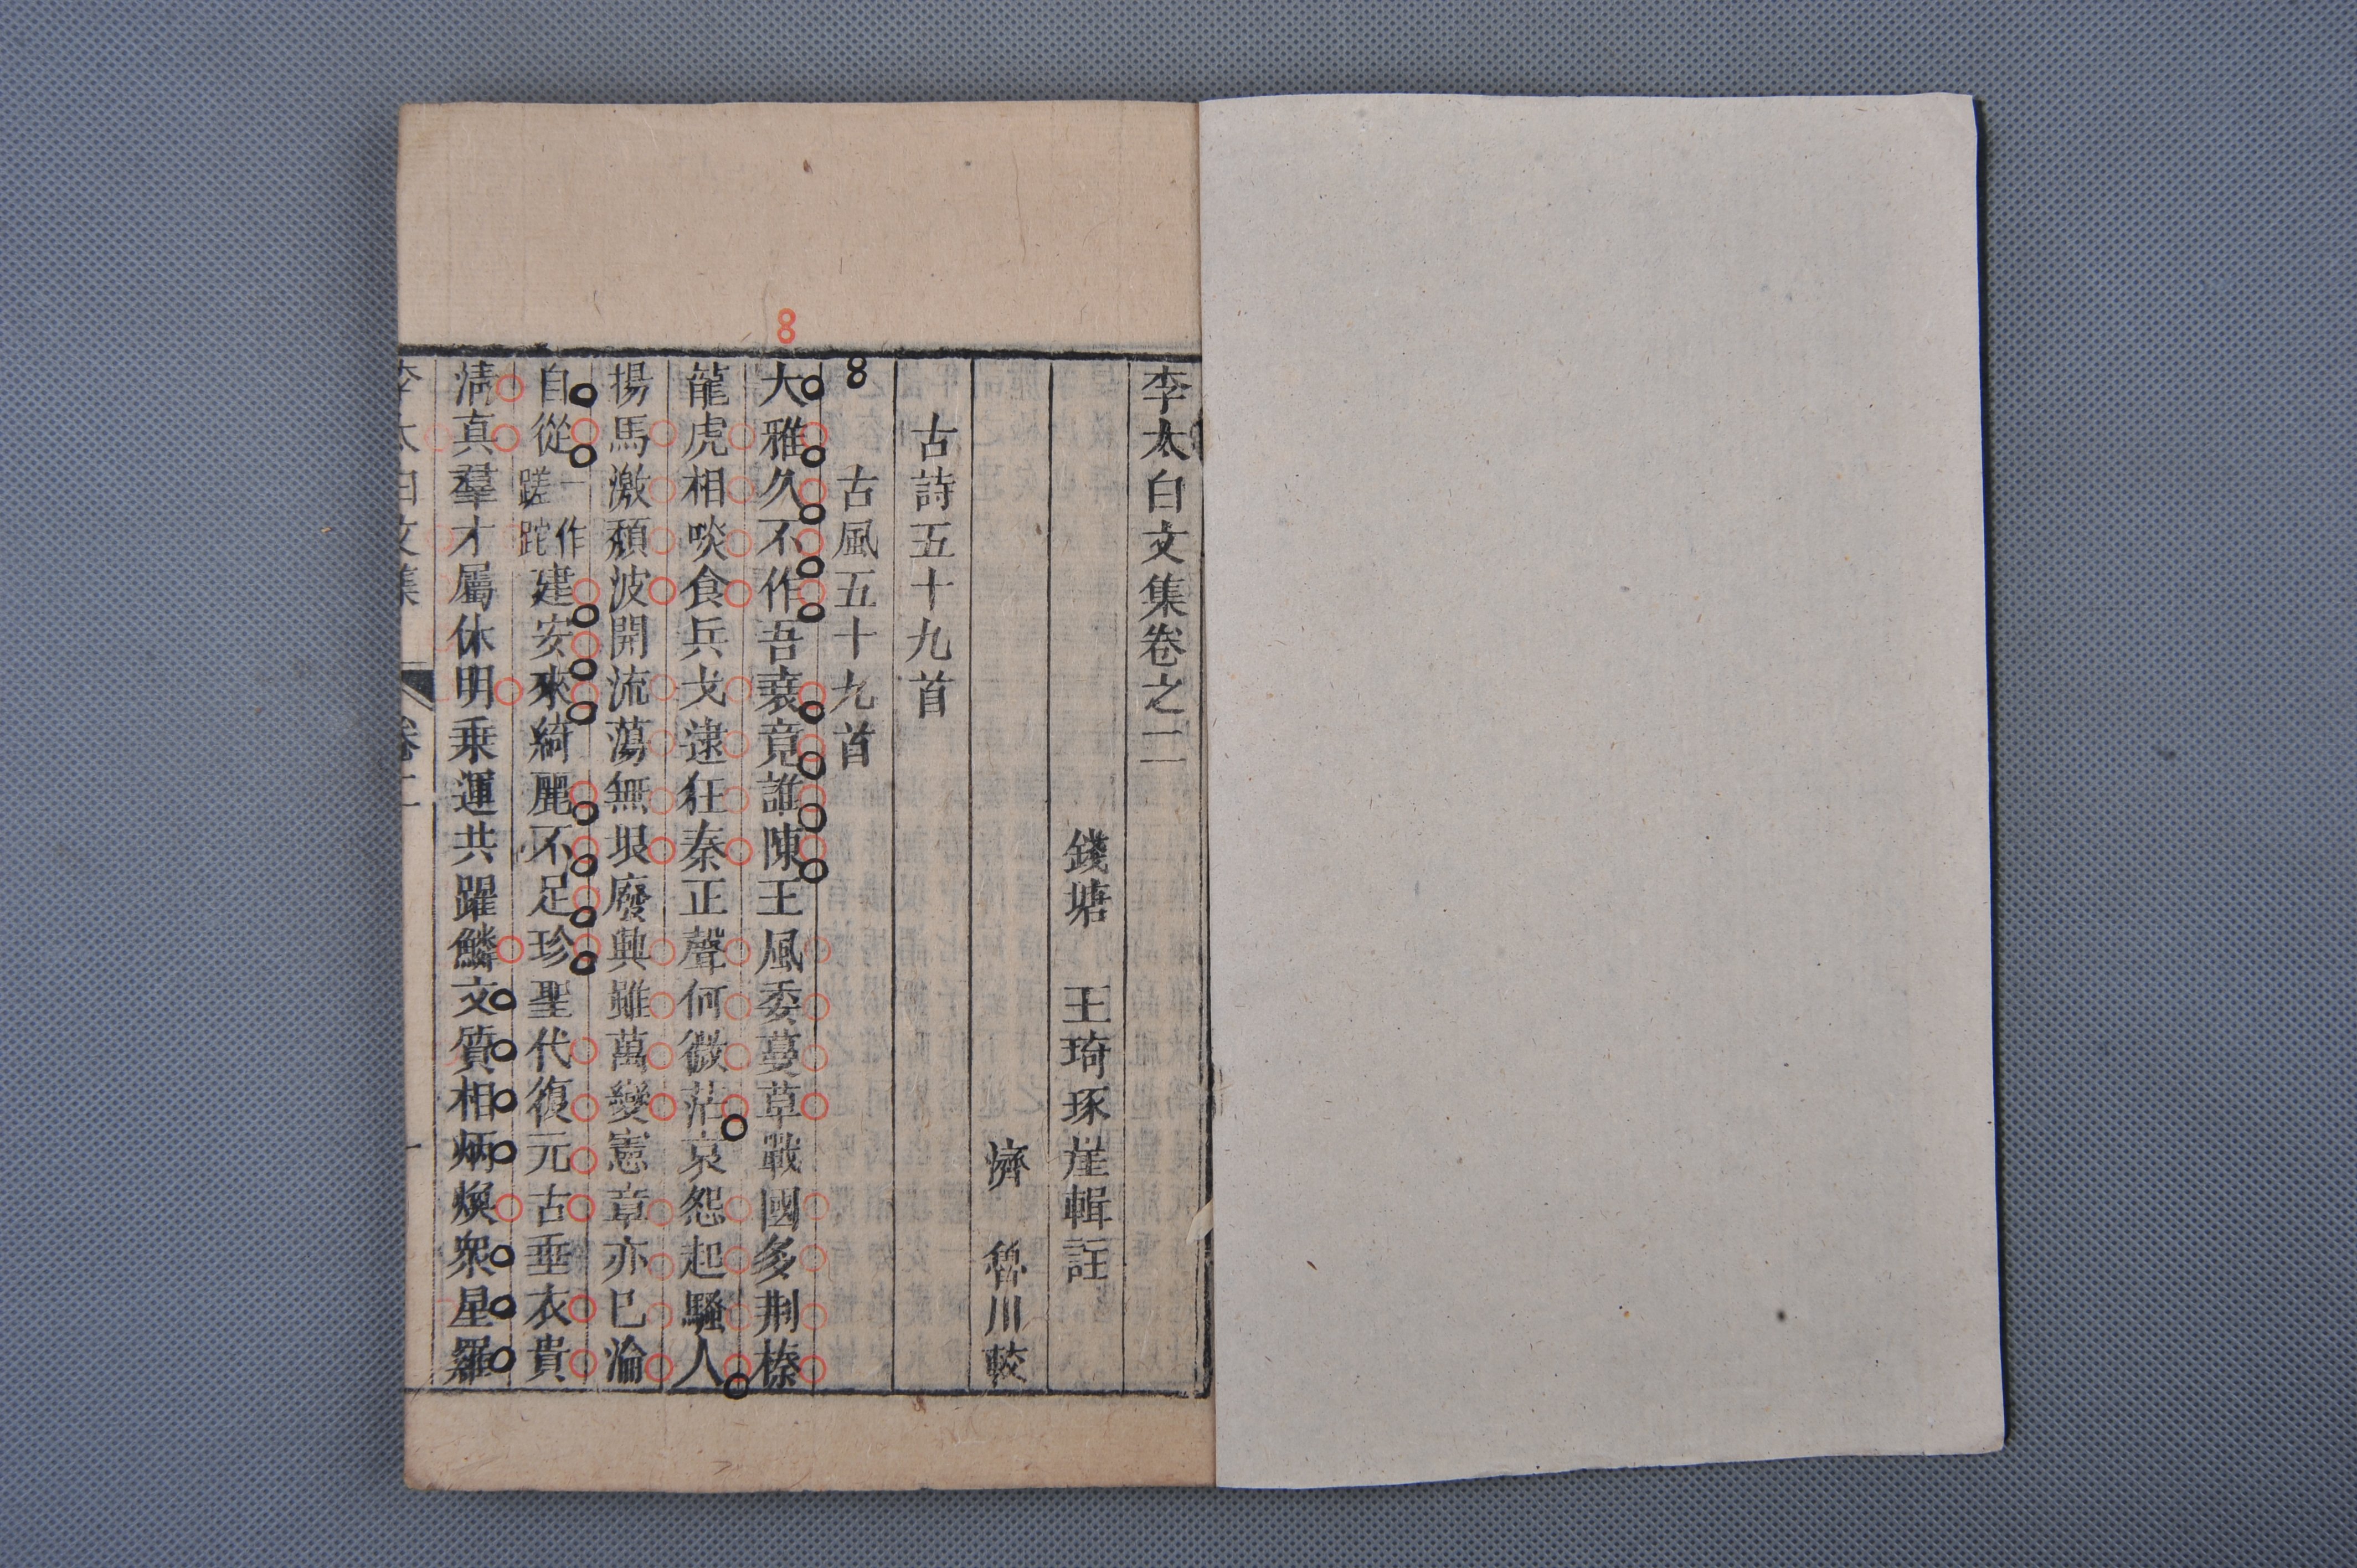 李太白文集卷之二
錢塘 王琦琢崖輯註
濟 魯川較
古詩五十九首
古風五十九首
大雅久不作吾衰竟誰陳王風委蔓草戰國多荆榛
龍虎相啖食兵戈逮狂秦正聲何微茫哀怨起騷人
揚馬激頽波開流蕩無垠廢興雖萬變憲章亦已淪
自從一作蹉跎建安來綺麗不足珍聖代復元古垂衣貴
清真羣才屬休明乗運共躍鱗文質相炳煥衆星羅
李太白文集 卷二 一